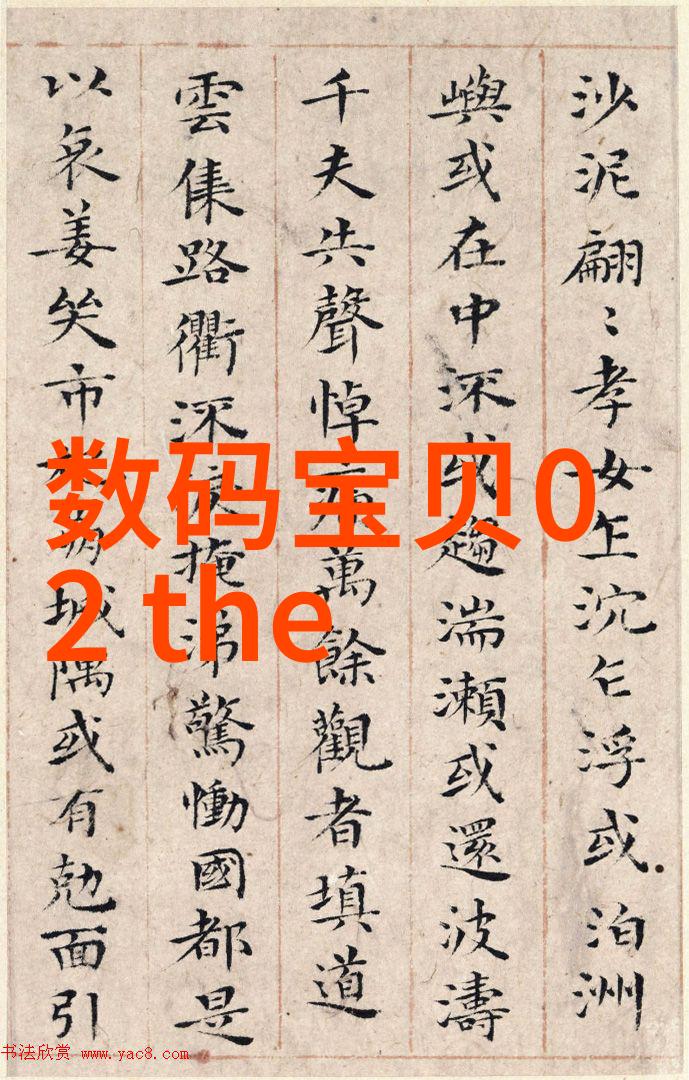 沙泥翩〻孝女乍沉乍浮或泊洲
嶼或在中深或趨湍瀨或還波濤
千夫共聲悼痛萬餘觀者填道
雲集路衢深淚掩涕驚慟國都是
以哀姜哭市城隅或有勊面引
数码宝贝0
2 the
书法欣赏 www.yac8.com